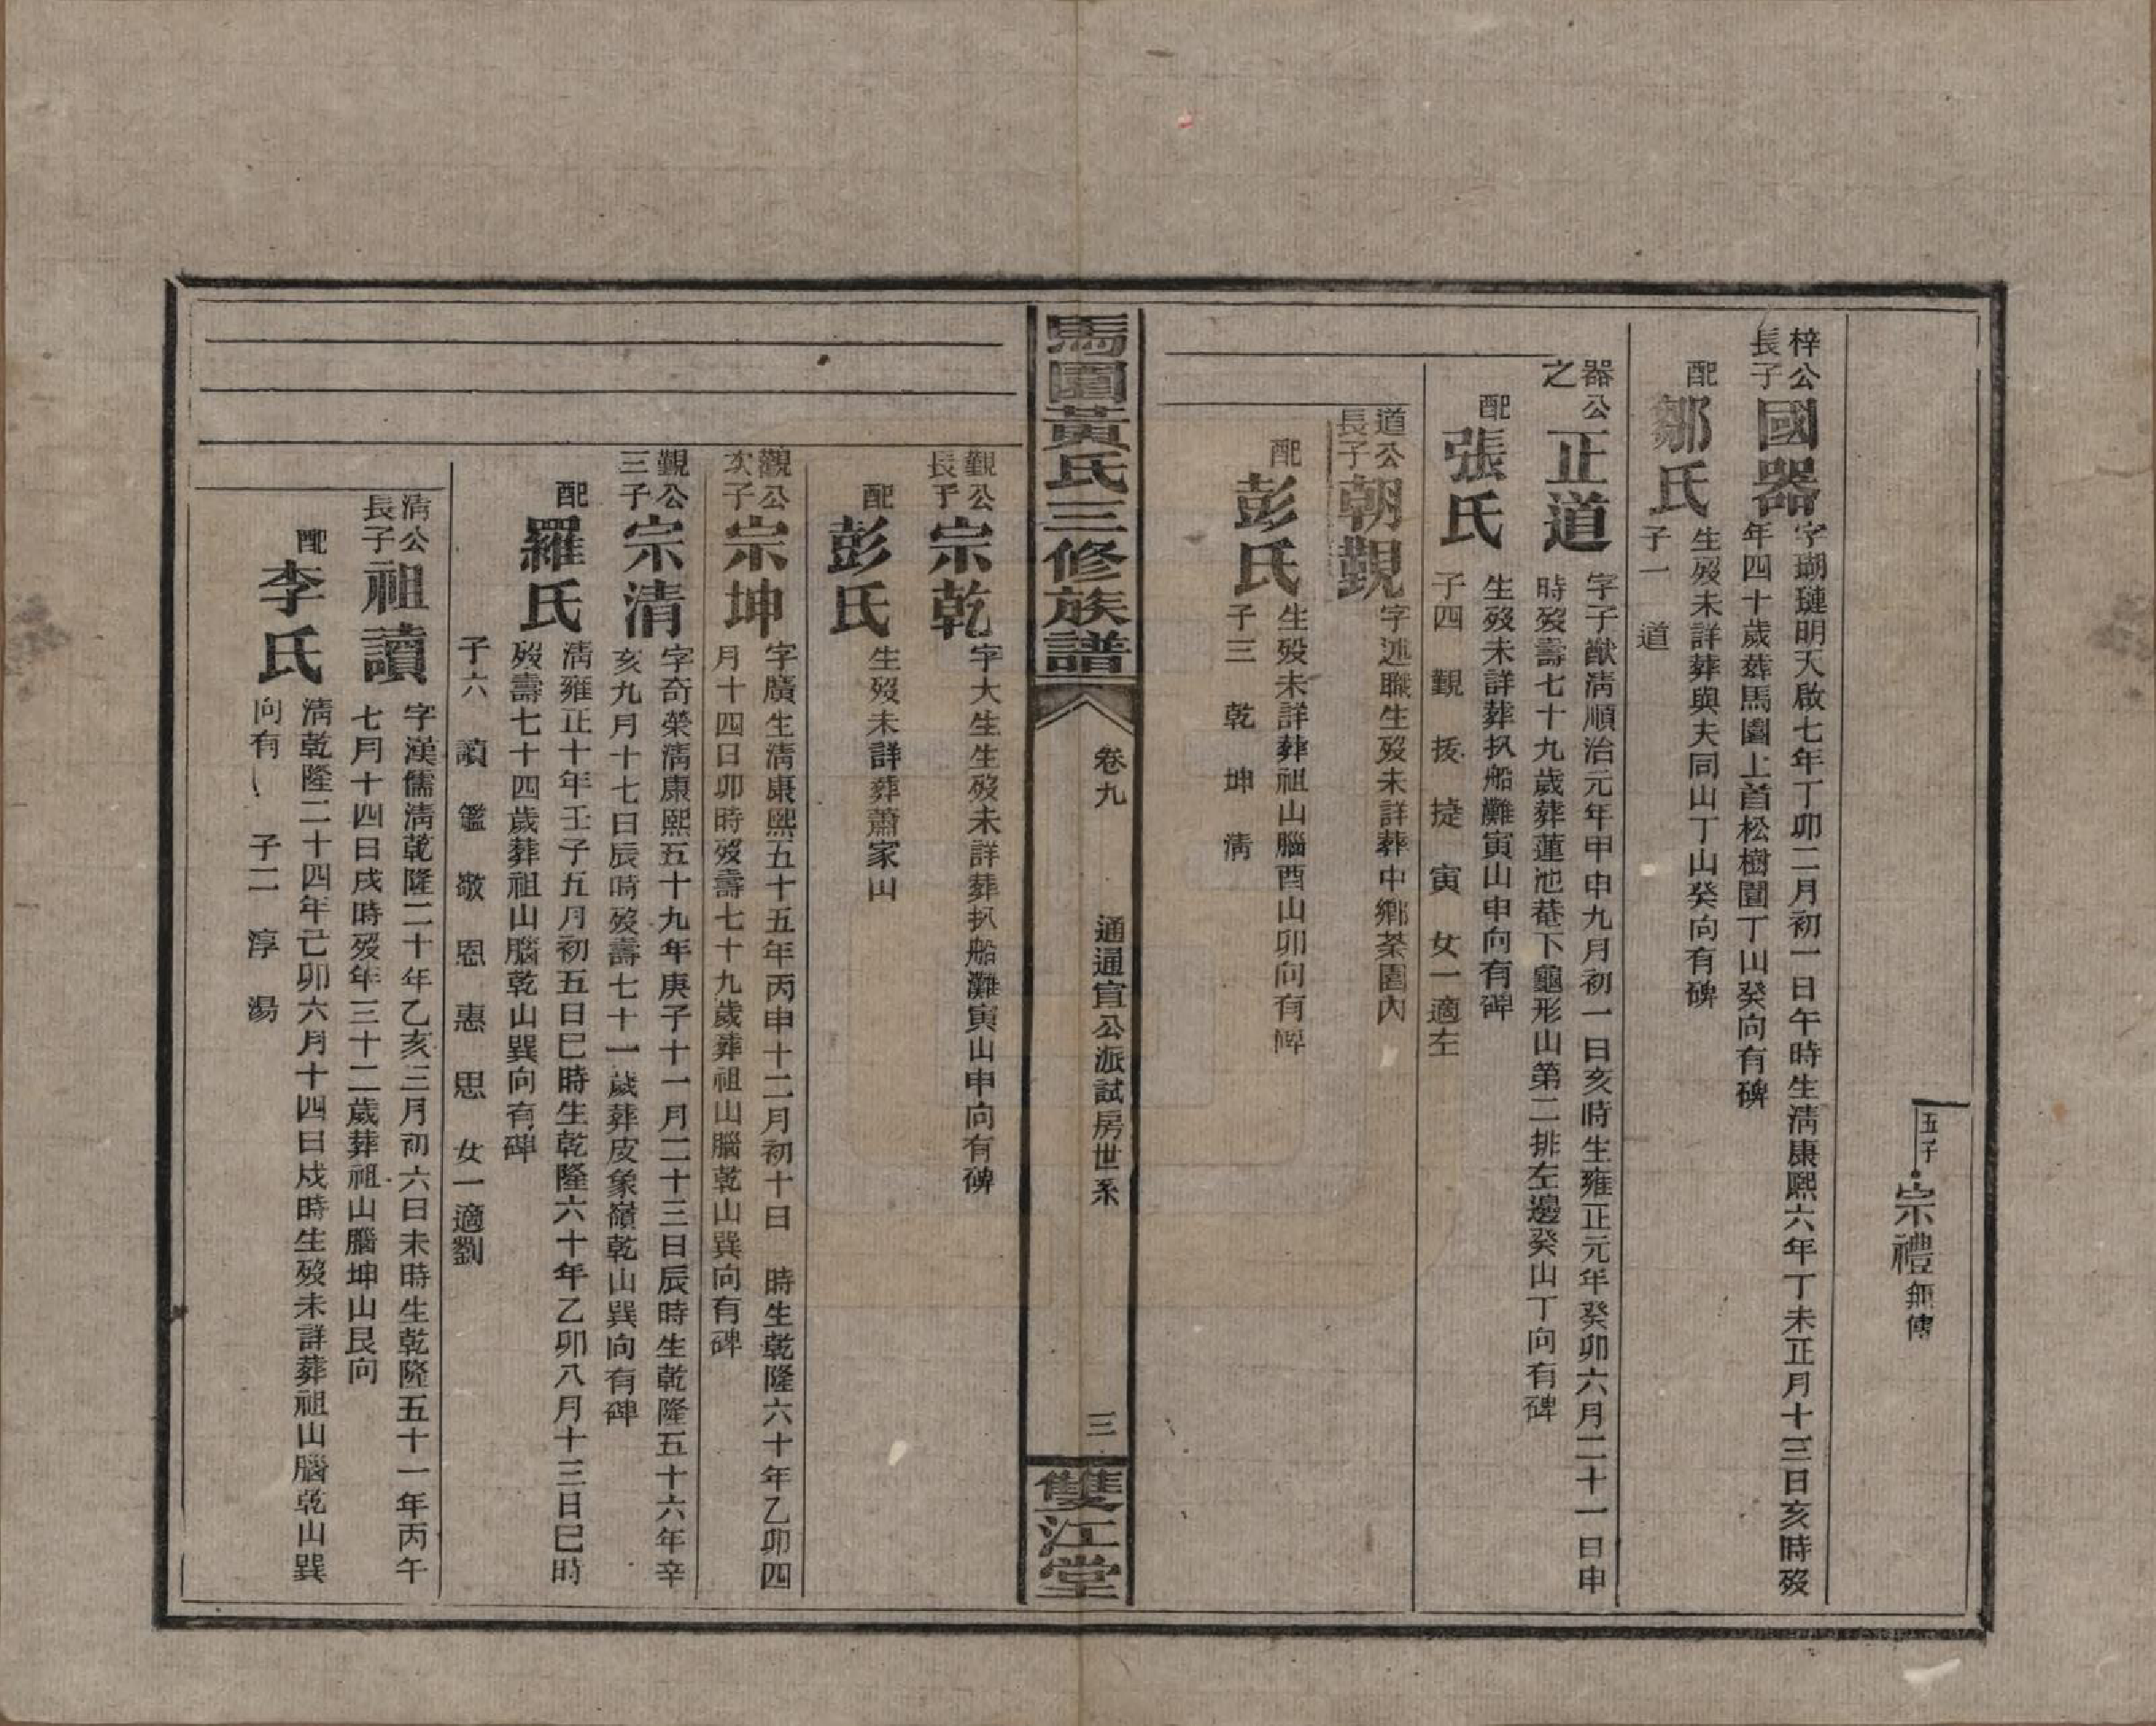 五子
宗禮無傳
梓公
長子
國器
字瑚璉明天啟七年丁卯二月初一日午時生淸康熙六年丁未正月十三日亥時歿
年四十歲葬馬園上首松樹園丁山癸向有碑
配
鄒氏
生歿未詳葬與夫同山丁山癸向有碑
子一 道
器公
之
正道
字子猷淸順治元年甲申九月初一日亥時生雍正元年癸卯六月二十一日申
時歿壽七十九歲葬蓮池菴下龜形山第二排左邊癸山丁向有碑
配
張氏
生歿未詳葬扒船灘寅山申向有碑
子四 覲 捘 捷 寅 女一適左
道公
長子
朝覲
字述職生歿未詳葬中鄉茶園內
配
彭氏
生殁未詳葬祖山腦酉山卯向有碑
子三 乾 坤 淸
馬園黃氏三修族譜
卷九
通通宣公派試房世系
三
雙江堂
覲公
長子
宗乾
字大生生歿未詳葬扒船灘寅山申向有碑
配
彭氏
生歿未詳葬蕭家山
覲公
次子
宗坤
字廣生淸康熙五十五年丙申十二月初十日 時生乾隆六十年乙卯四
月十四日卯時歿壽七十九歲葬祖山腦乾山巽向有碑
覲公
三子
宗清
字奇榮淸康熙五十九年庚子十一月二十三日辰時生乾隆五十六年辛
亥九月十七日辰時歿壽七十一歲葬皮象嶺乾山巽向有碑
配
羅氏
淸雍正十年壬子五月初五日巳時生乾隆六十年乙卯八月十三日巳時
歿壽七十四歲葬祖山腦乾山巽向有碑
子六 讀 鑑 敬 恩 惠 思 女一適劉
淸公
長子
祖讀
字漢儒淸乾隆二十年乙亥三月初六日未時生乾隆五十一年丙午
七月十四日戌時歿年三十二歲葬祖山腦坤山艮向
配
李氏
淸乾隆二十四年己卯六月十四日戌時生歿未詳葬祖山腦乾山巽
向有 子二 淳 湯